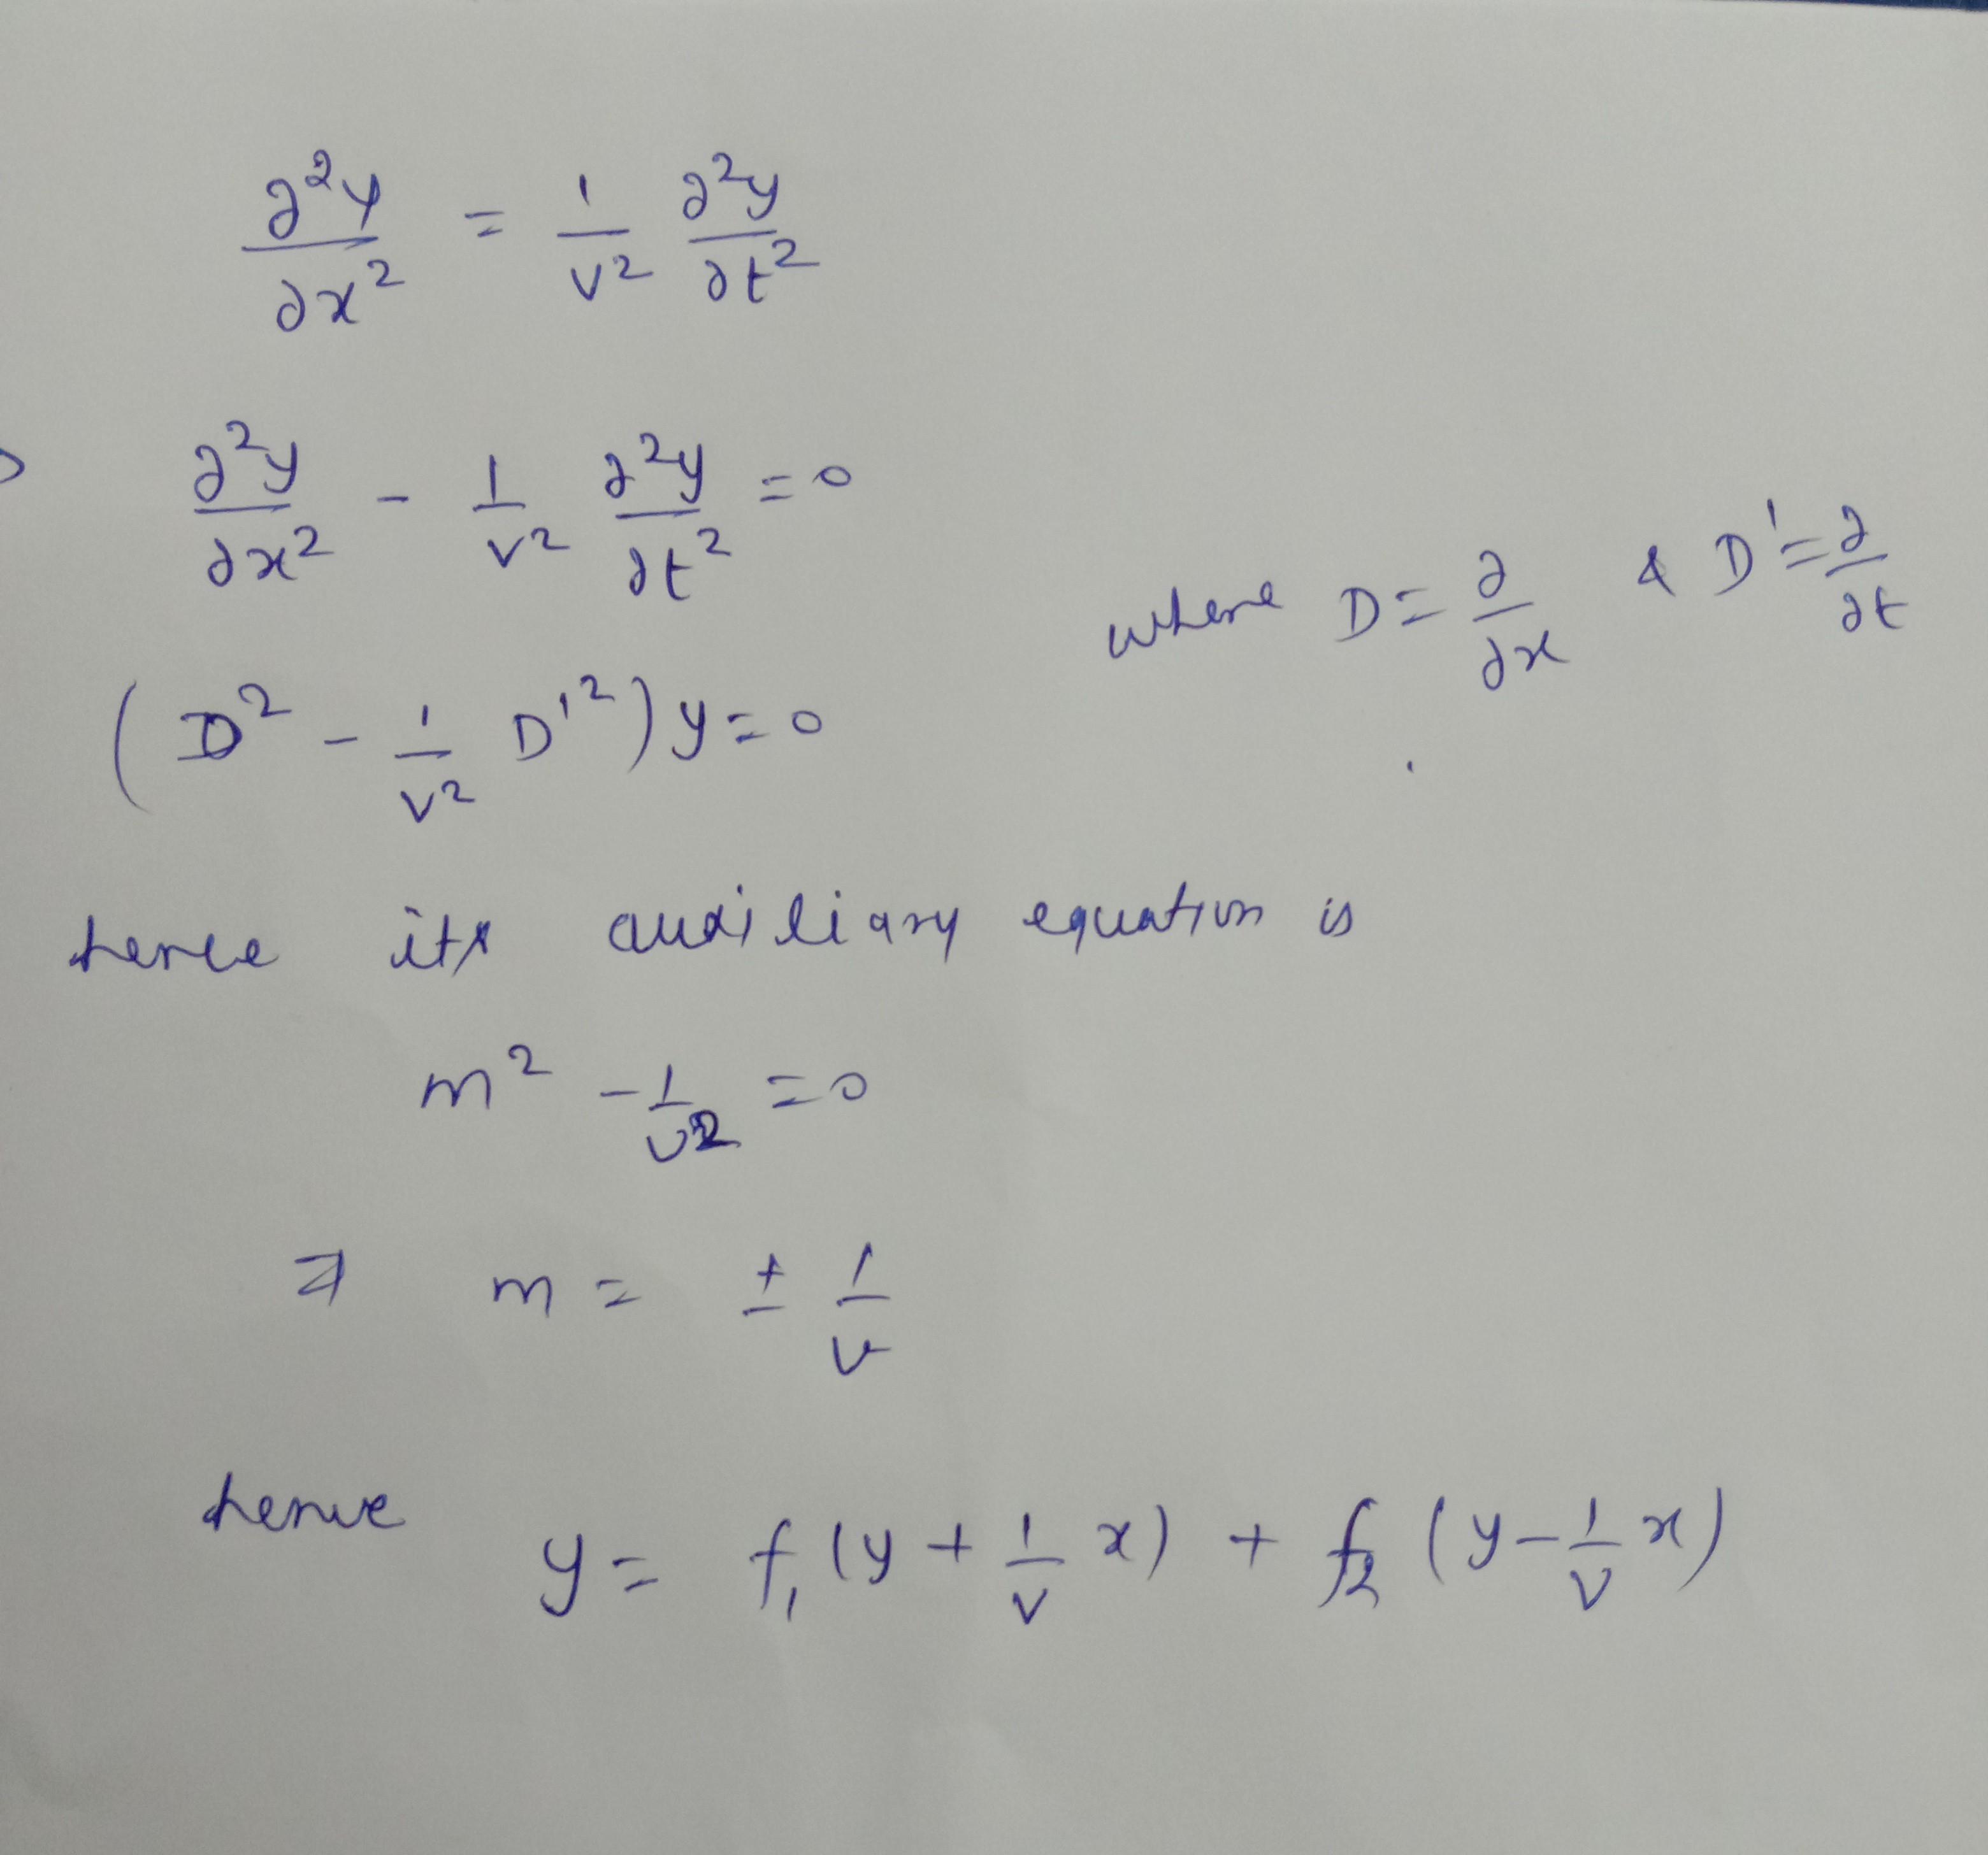 ∂²y/∂x² = 1/v² ∂²y/∂t²
∂²y/∂x² - 1/v² ∂²y/∂t² = 0
where D = ∂/∂x & D' = ∂/∂t
(D² - 1/v² D'²) y = 0
hence its auxiliary equation is
m² - 1/v² = 0
⇒ m = ± 1/v
hence y = f₁(y + 1/v x) + f₂(y - 1/v x)